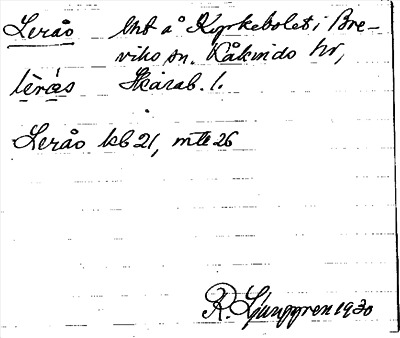 Lerås lht å Kyrkebolet i Bre-
viks sn. Kåkinds hd,
lèrás Skarab. l.
Lerås kb 21, mtl 26
R. Ljunggren 1930